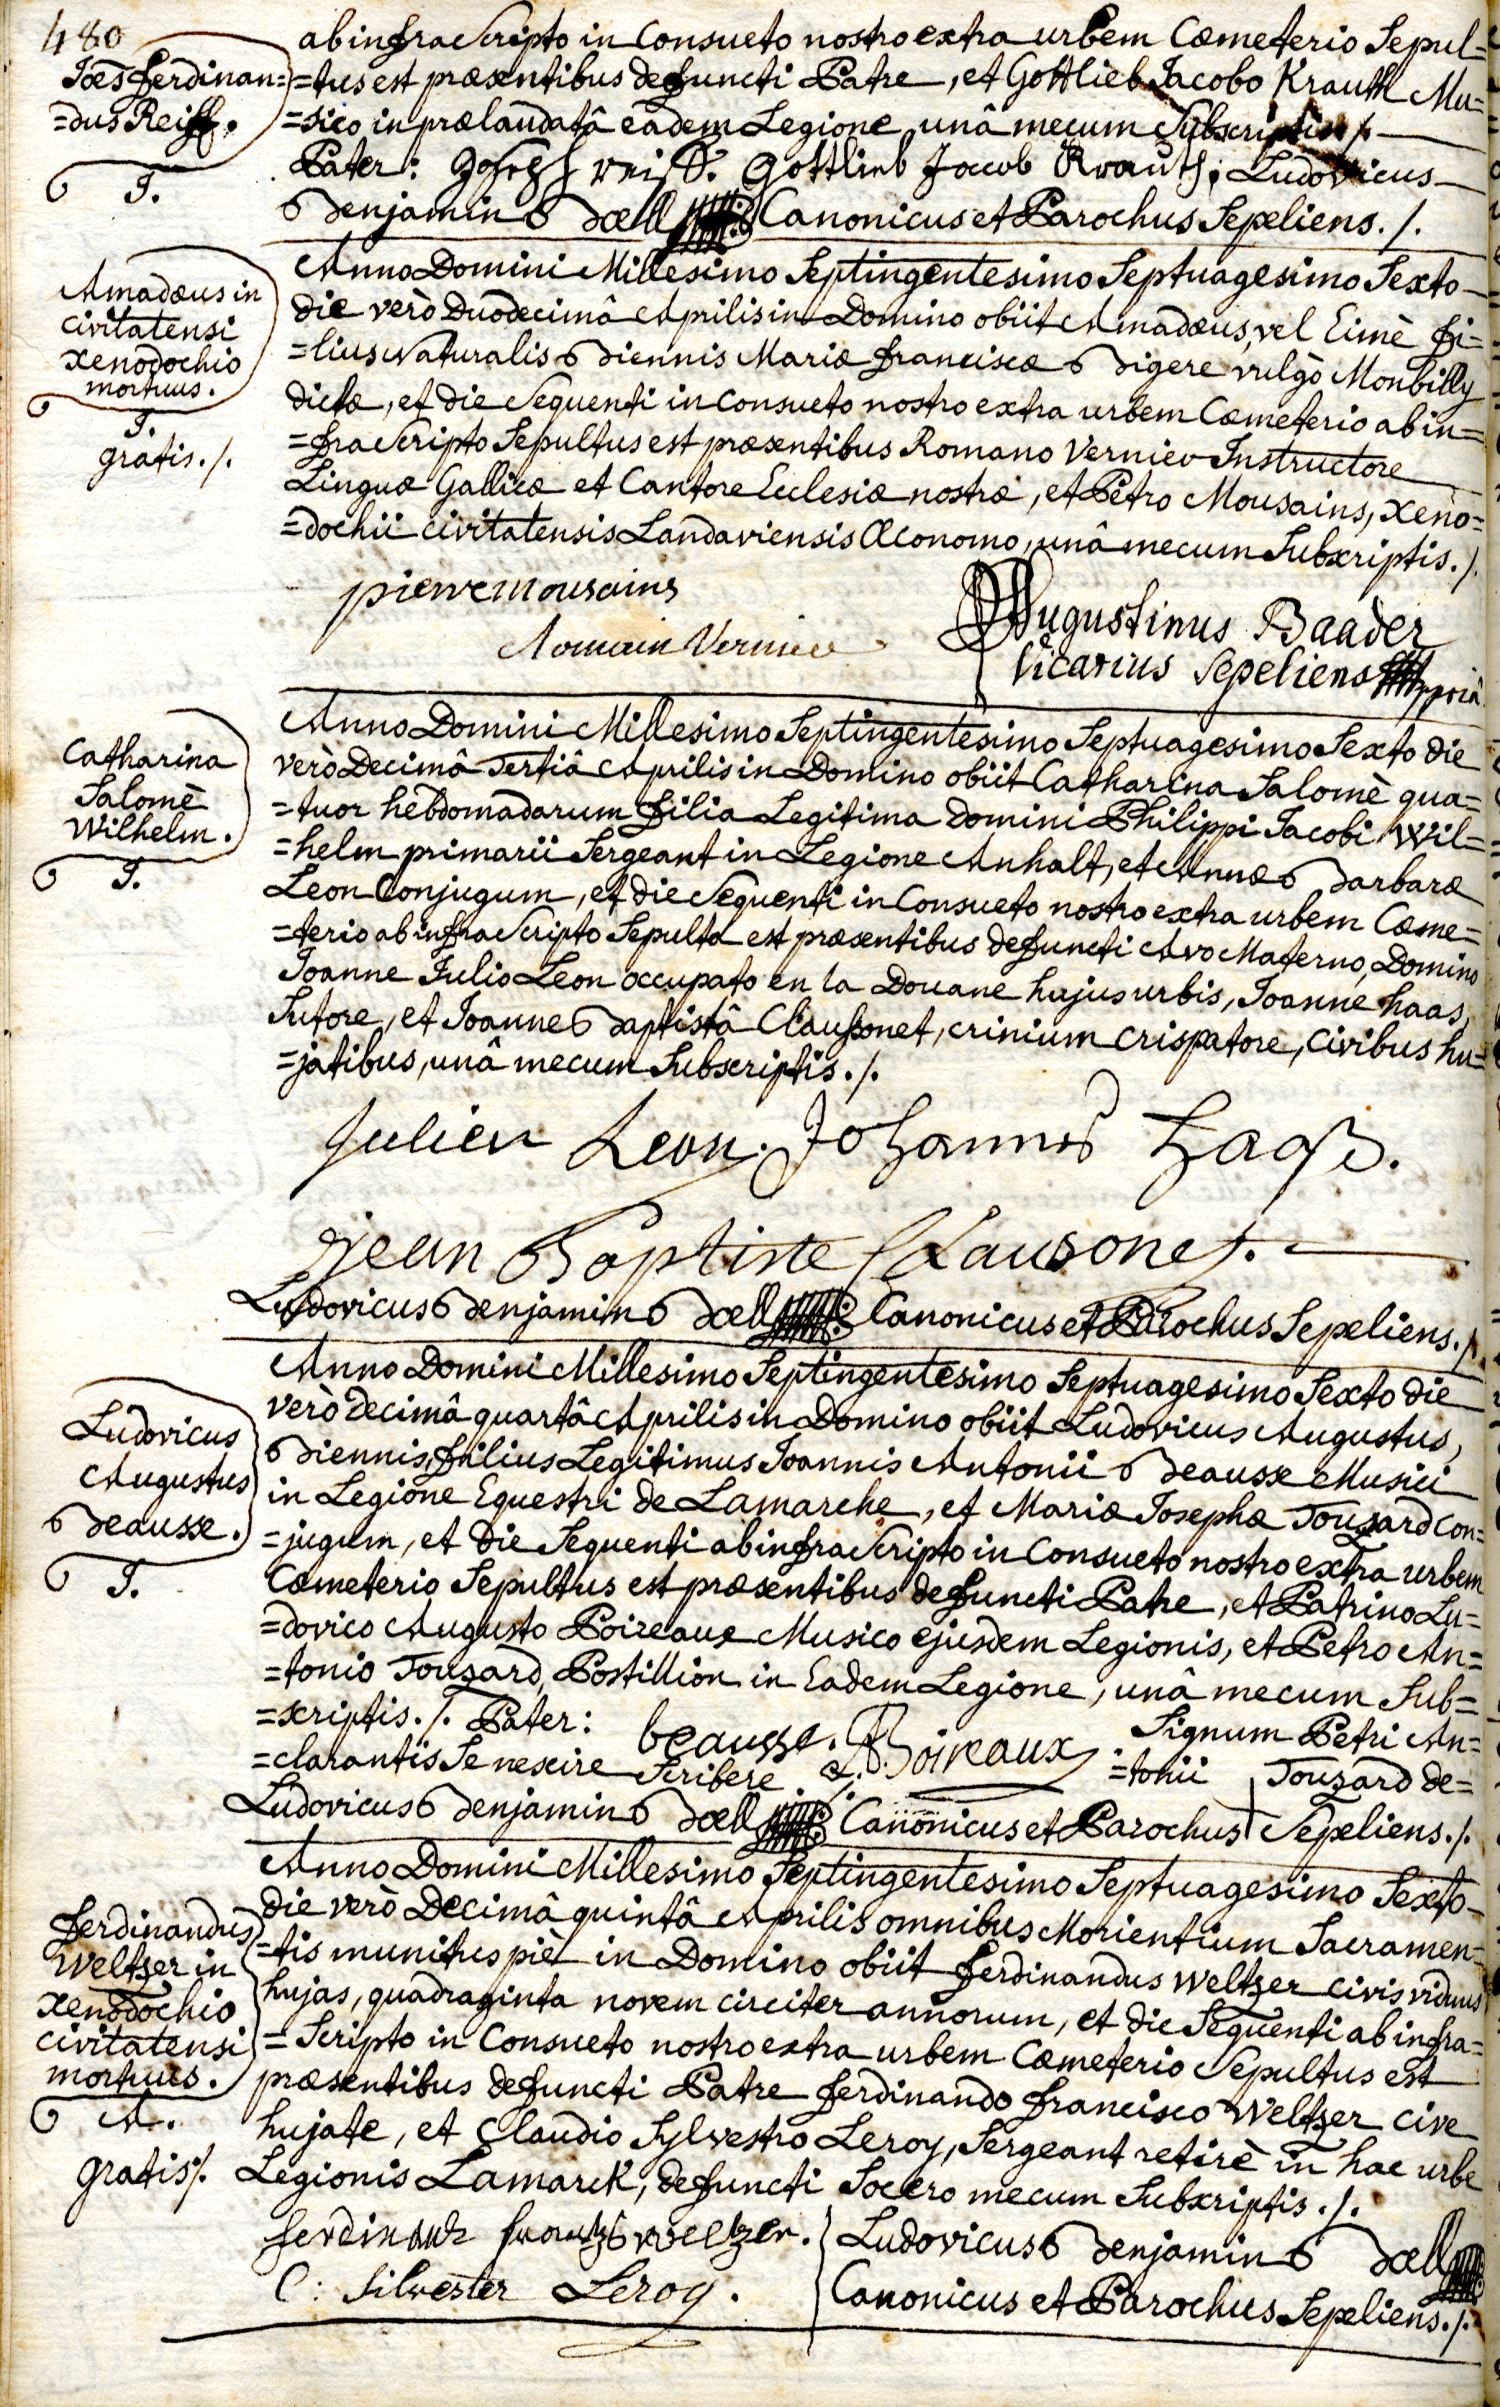 480
Joẽs Ferdinan=
=dus Reiff.
J.
ab infra Scripto in Consueto nostro extra urbem Cœmeterio Sepul=
=tus est præsentibus defuncti Patre, et Gottlieb Jacobo Krauth Mu=
=sico in prælaudatâ eâdem Legione unâ mecum Subscriptis ./.
Pater: Joseph reiff. Gottlieb Jacob Krauth; Ludovicus
Benjamin Bœll Canonicus et Parochus Sepeliens ./.
Amadæus in
Civitatensi
Xenodochio
mortuus.
J.
gratis ./.
Anno Domini Millesimo Septingentesimo Septuagesimo Sexto
die verò Duodecimâ Aprilis in Domino obiit Amadæus, vel Eimè fi=
=lius Naturalis Biennis Mariæ Franciscæ Bigere vulgò Monbilly
dictæ, et die Sequenti in Consueto nostro extra urbem Cœmeterio ab in=
=fra Scripto Sepultus est præsentibus Romano Vernier Instructore
Linguæ Gallicæ et Cantore Ecclesiæ nostræ, et Petro Mousains, Xeno=
=dochii Civitatensis Landaviensis Œconomo, unâ mecum Subscriptis ./.
pierre mousains
Romain Vernier
Augustinus Baader
Vicarius Sepeliens ppriâ
Catharina
Salomè
Wilhelm.
J.
Anno Domini Millesimo Septingentesimo Septuagesimo Sexto die
verò Decimâ Tertiâ Aprilis in Domino obiit Catharina Salomè qua=
=tuor hebdomadarum Filia Legitima Domini Philippi Jacobi Wil=
=helm primarii Sergeant in Legione Anhalt, et Annæ Barbaræ
Leon Conjugum, et die Sequenti in Consueto nostro extra urbem Cœme=
=terio ab infra Scripto Sepulta est præsentibus defuncti Avo Materno, Domino
Joanne Julio Leon occupato en la Douane hujus urbis, Joanne haas,
Sutore, et Joanne Baptistâ Claussonet, crinium crispatore, Civibus hu=
=jatibus, unâ mecum Subscriptis ./.
Julien Leon. Johannes Haaß.
jean Baptiste Clausonet.
Ludovicus Benjamin Bœll Canonicus et Parochus Sepeliens ./.
Ludovicus
Augustus
Beausse.
J.
Anno Domini Millesimo Septingentesimo Septuagesimo Sexto die
verò decimâ quartâ Aprilis in Domino obiit Ludovicus Augustus,
Biennis, filius Legitimus Joannis Antonii Beausse Musici
in Legione Equestri de Lamarche, et Mariæ Josephæ Touzard Con=
=jugum, et die Sequenti ab infra Scripto in Consueto nostro extra urbem
Cœmeterio Sepultus est præsentibus defuncti Patre, et Patrino Lu=
=dovico Augusto Poireaux Musico ejusdem Legionis, et Petro An=
=tonio Touzard, Postillion in Eadem Legione, unâ mecum Sub=
=scriptis ./. Pater: beausse. Poireaux. Signum Petri An=
=tonii Touzard de=
=clarantis Se nescire Scribere
Ludovicus Benjamin Bœll Canonicus et Parochus Sepeliens ./.
Ferdinandus
Weltzer in
Xenodochio
Civitatensi
mortuus.
A.
gratis ./.
Anno Domini Millesimo Septingentesimo Septuagesimo Sexto
die verò Decimâ quintâ Aprilis omnibus Morientium Sacramen=
=tis munitus piè in Domino obiit Ferdinandus Weltzer Civis viduus
hujas, quadraginta novem circiter annorum, et die Sequenti ab infra=
=Scripto in Consueto nostro extra urbem Cœmeterio Sepultus est
præsentibus defuncti Patre Ferdinando Francisco Weltzer Cive
hujate, et Claudio Sylvestro Leroy, Sergeant retirè in hac urbe
Legionis Lamarck, defuncti Socero mecum Subscriptis ./.
ferdinant frantz weltzer.
C: Silvester Leroy.
Ludovicus Benjamin Bœll
Canonicus et Parochus Sepeliens ./.